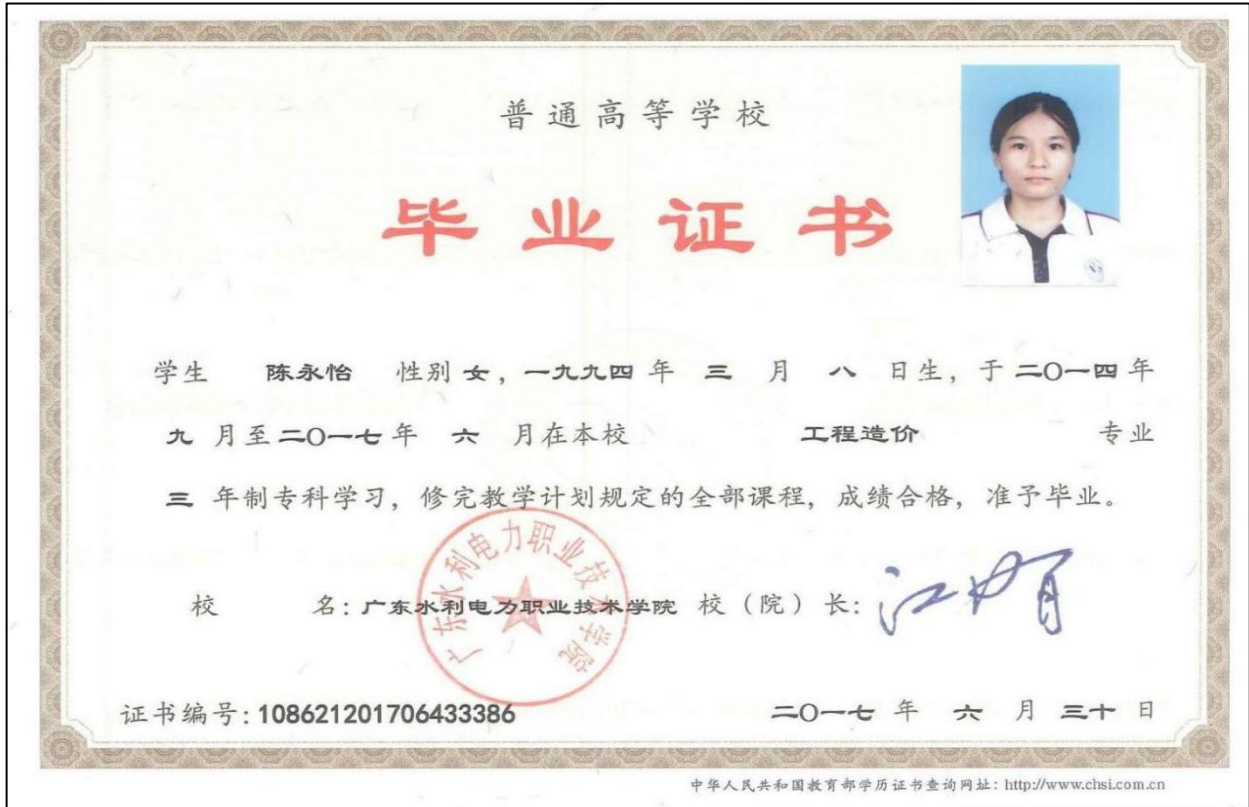 普通高等学校
毕业证书
学生 陈永怡 性别 女，一九九四 年 三 月 八 日生，于 二O一四 年
九 月至 二O一七 年 六 月在本校 工程造价 专业
三 年制专科学习，修完教学计划规定的全部课程，成绩合格，准予毕业。
广东水利电力职业技术学院
校 名：广东水利电力职业技术学院 校（院）长：
证书编号：108621201706433386 二O一七 年 六 月 三十 日
中华人民共和国教育部学历证书查询网址：http://www.chsi.com.cn